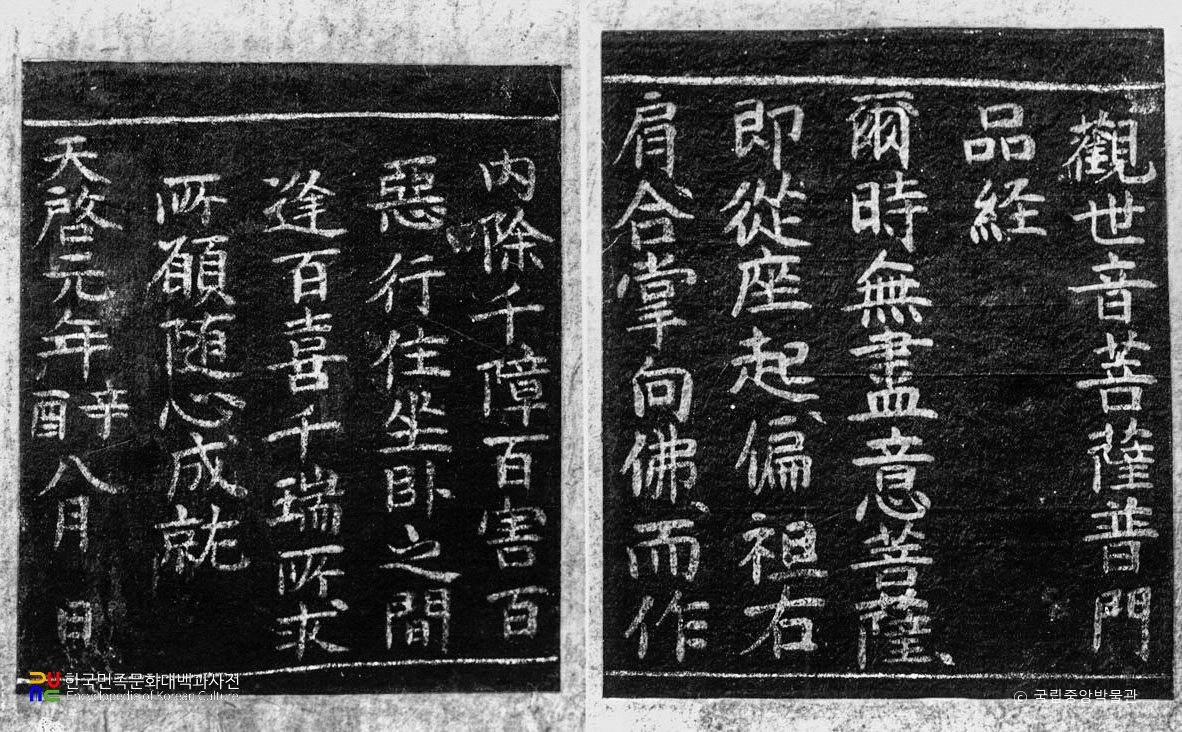 觀世音菩薩普門
品経
爾時無盡意菩薩
即從座起偏袒右
肩合掌向佛而作
内除千障百害百
惡行住坐卧之間
逢百喜千瑞所求
所願随心成就
天啓元年辛酉八月 日
한국민족문화대백과사전
Encyclopedia of Korean Culture
© 국립중앙박물관